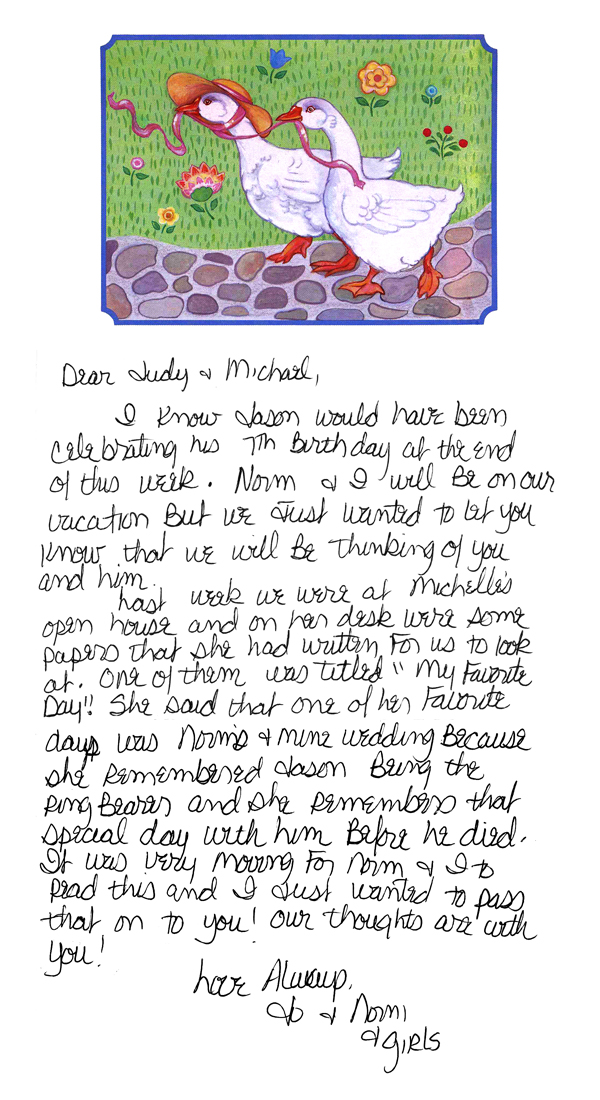 Dear Judy & Michael,
I know Jason would have been
celebrating his 7th Birthday at the end
of this week. Norm & I will Be on our
vacation But we Just wanted to let you
know that we will Be Thinking of you
and him.
Last week we were at Michelle's
open house and on her desk were some
papers that she had written For us to look
at. One of them was titled "My Favorite
Day"! She said that one of her Favorite
days was Norm's & mine wedding Because
she Remembered Jason Being the
Ring Bearer and she Remembers that
special day with him Before he died.
It was very moving For Norm & I to
Read this and I Just wanted to pass
that on to you! Our thoughts are with
you!
Love Always,
Jo & Norm
& girls